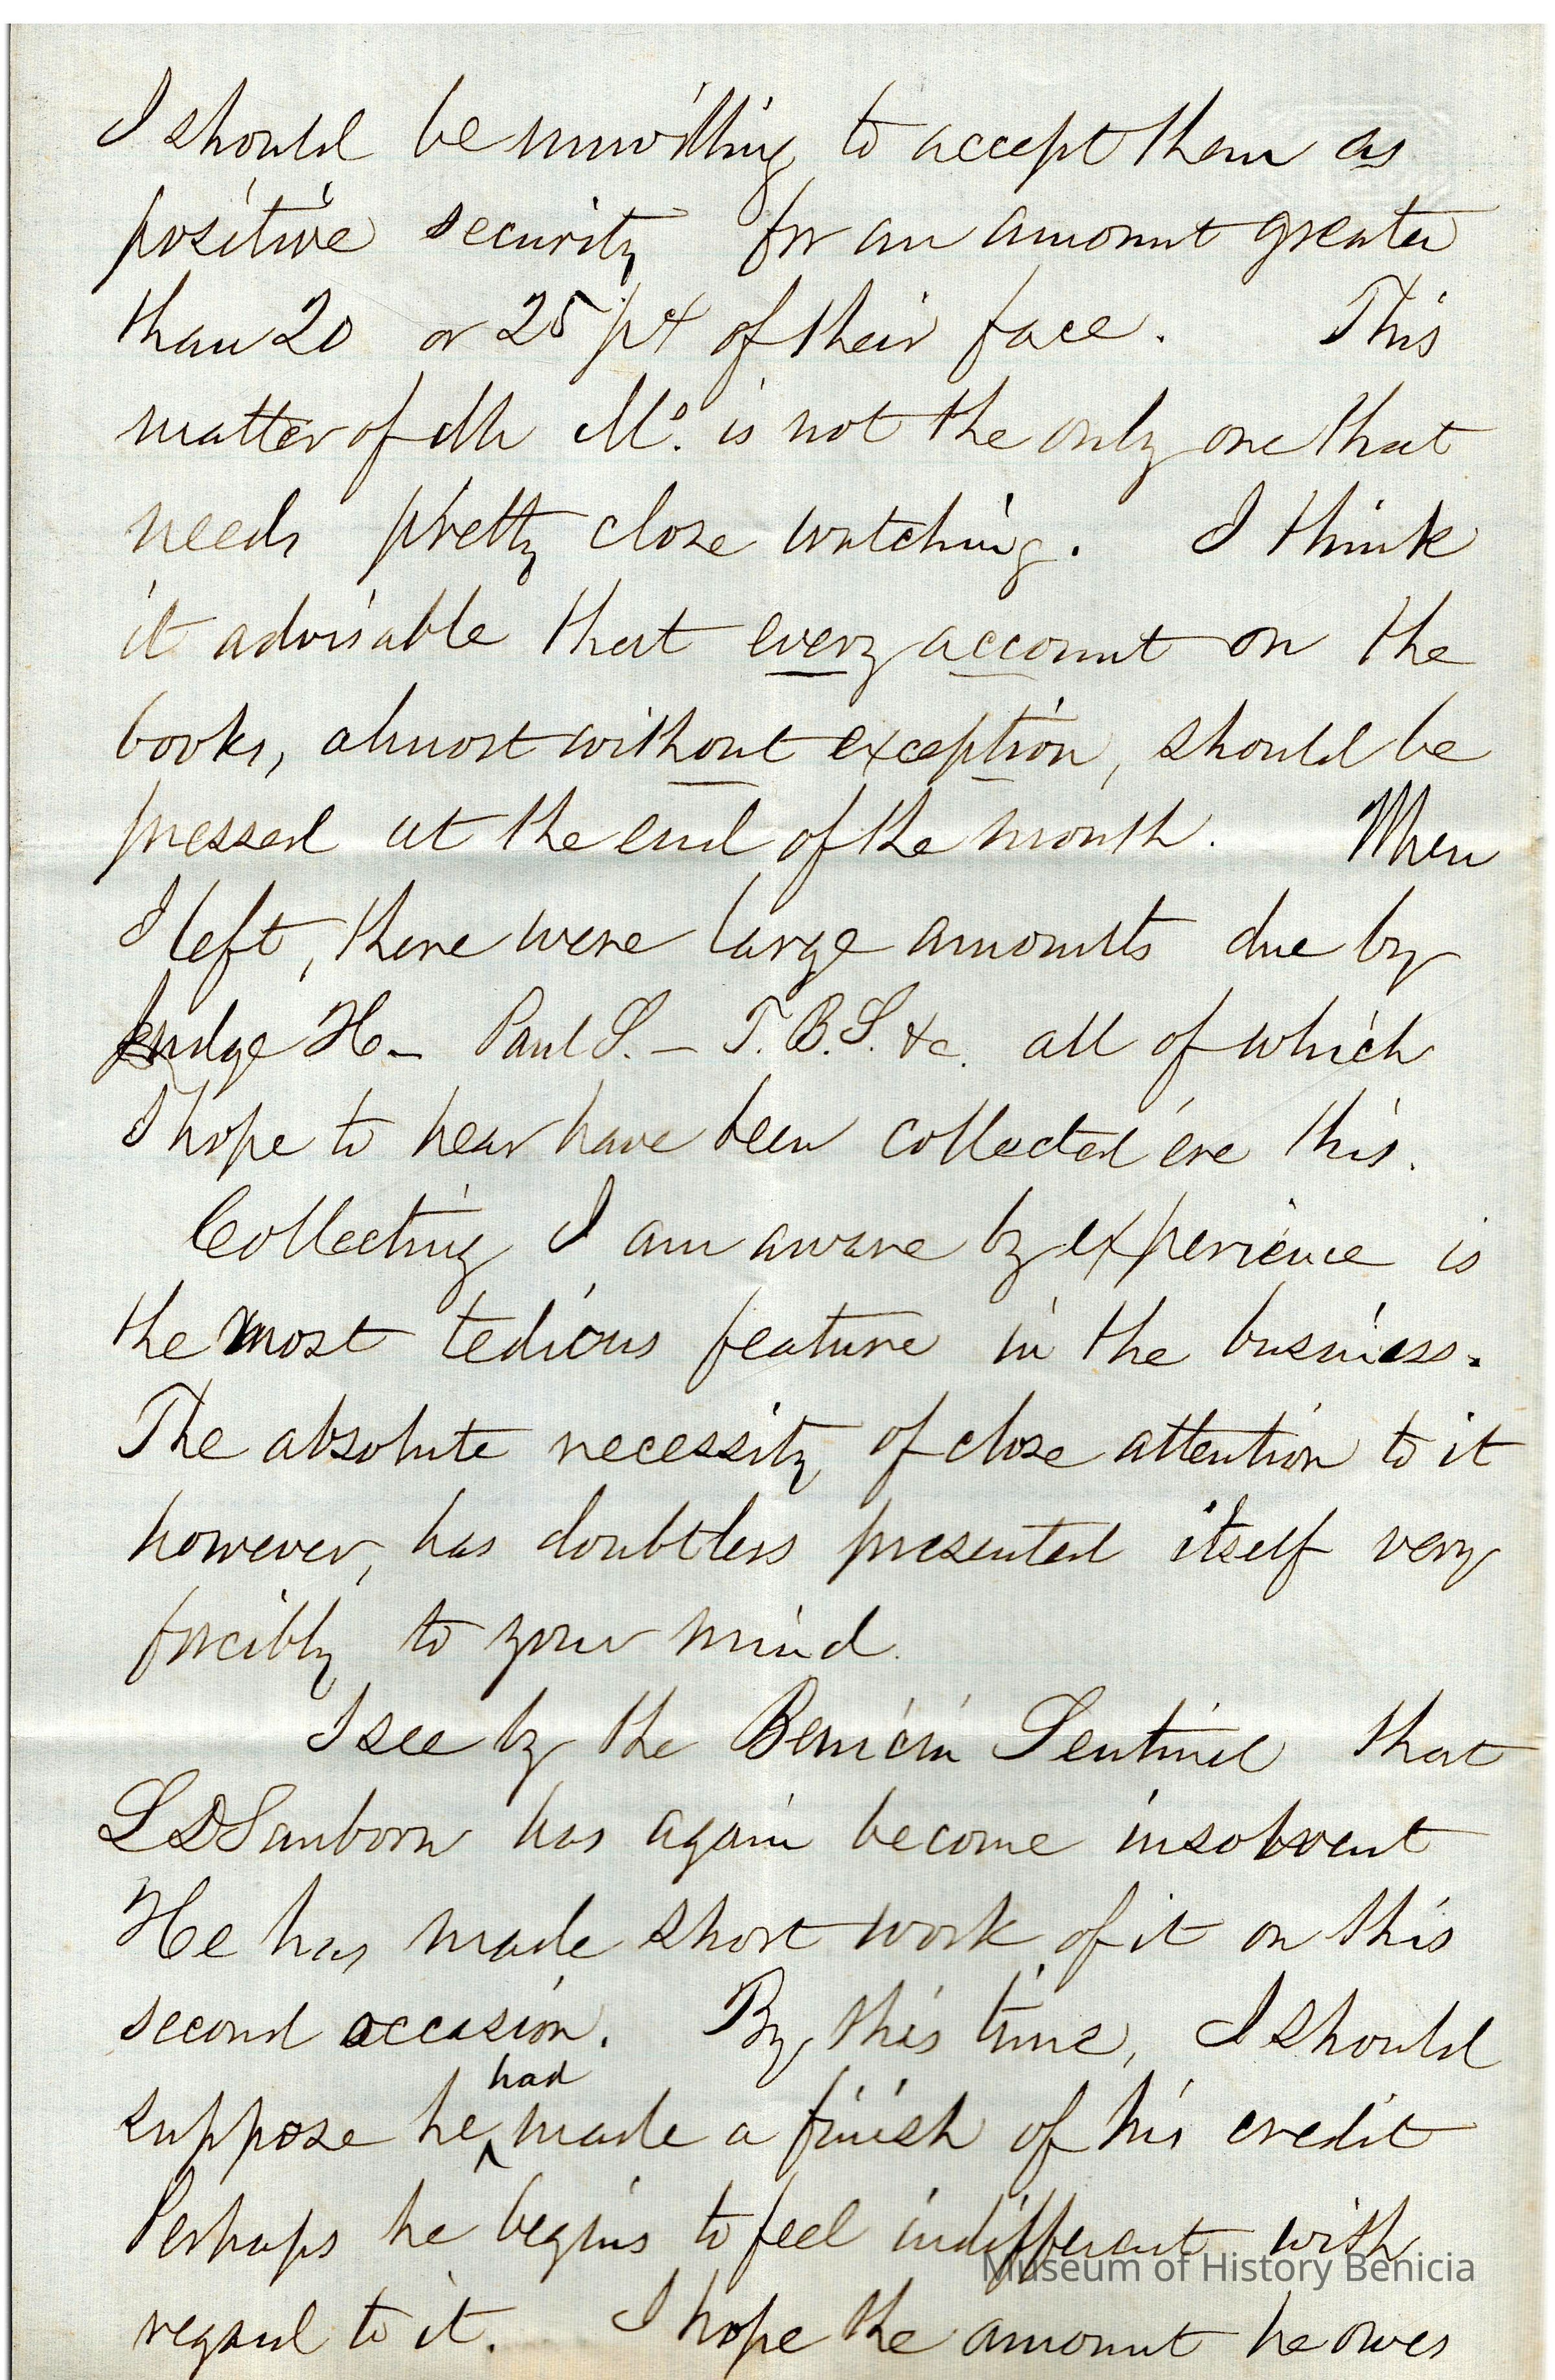 I should be unwilling to accept them as
positive security for an amount greater
than 20 or 25 pct of their face. This
matter of Mr Mc. is not the only one that
needs pretty close watching. I think
it advisable that every account on the
books, almost without exception, should be
pressed at the end of the month. When
I left, there were large amounts due by
Judge H– Paul S. – T. B. S. &c. all of which
I hope to hear have been collected ere this.
Collecting I am aware by experience is
the most tedious feature in the business.
The absolute necessity of close attention to it
however, has doubtless presented itself very
forcibly to your mind.
I see by the Benicia Sentinel that
L D Sanborn has again become insolvent
He has made short work of it on this
second occasion. By this time, I should
had
suppose he ^ made a finish of his credit
Perhaps he begins to feel indifferent with
Museum of History Benicia
regard to it. I hope the amount he owes